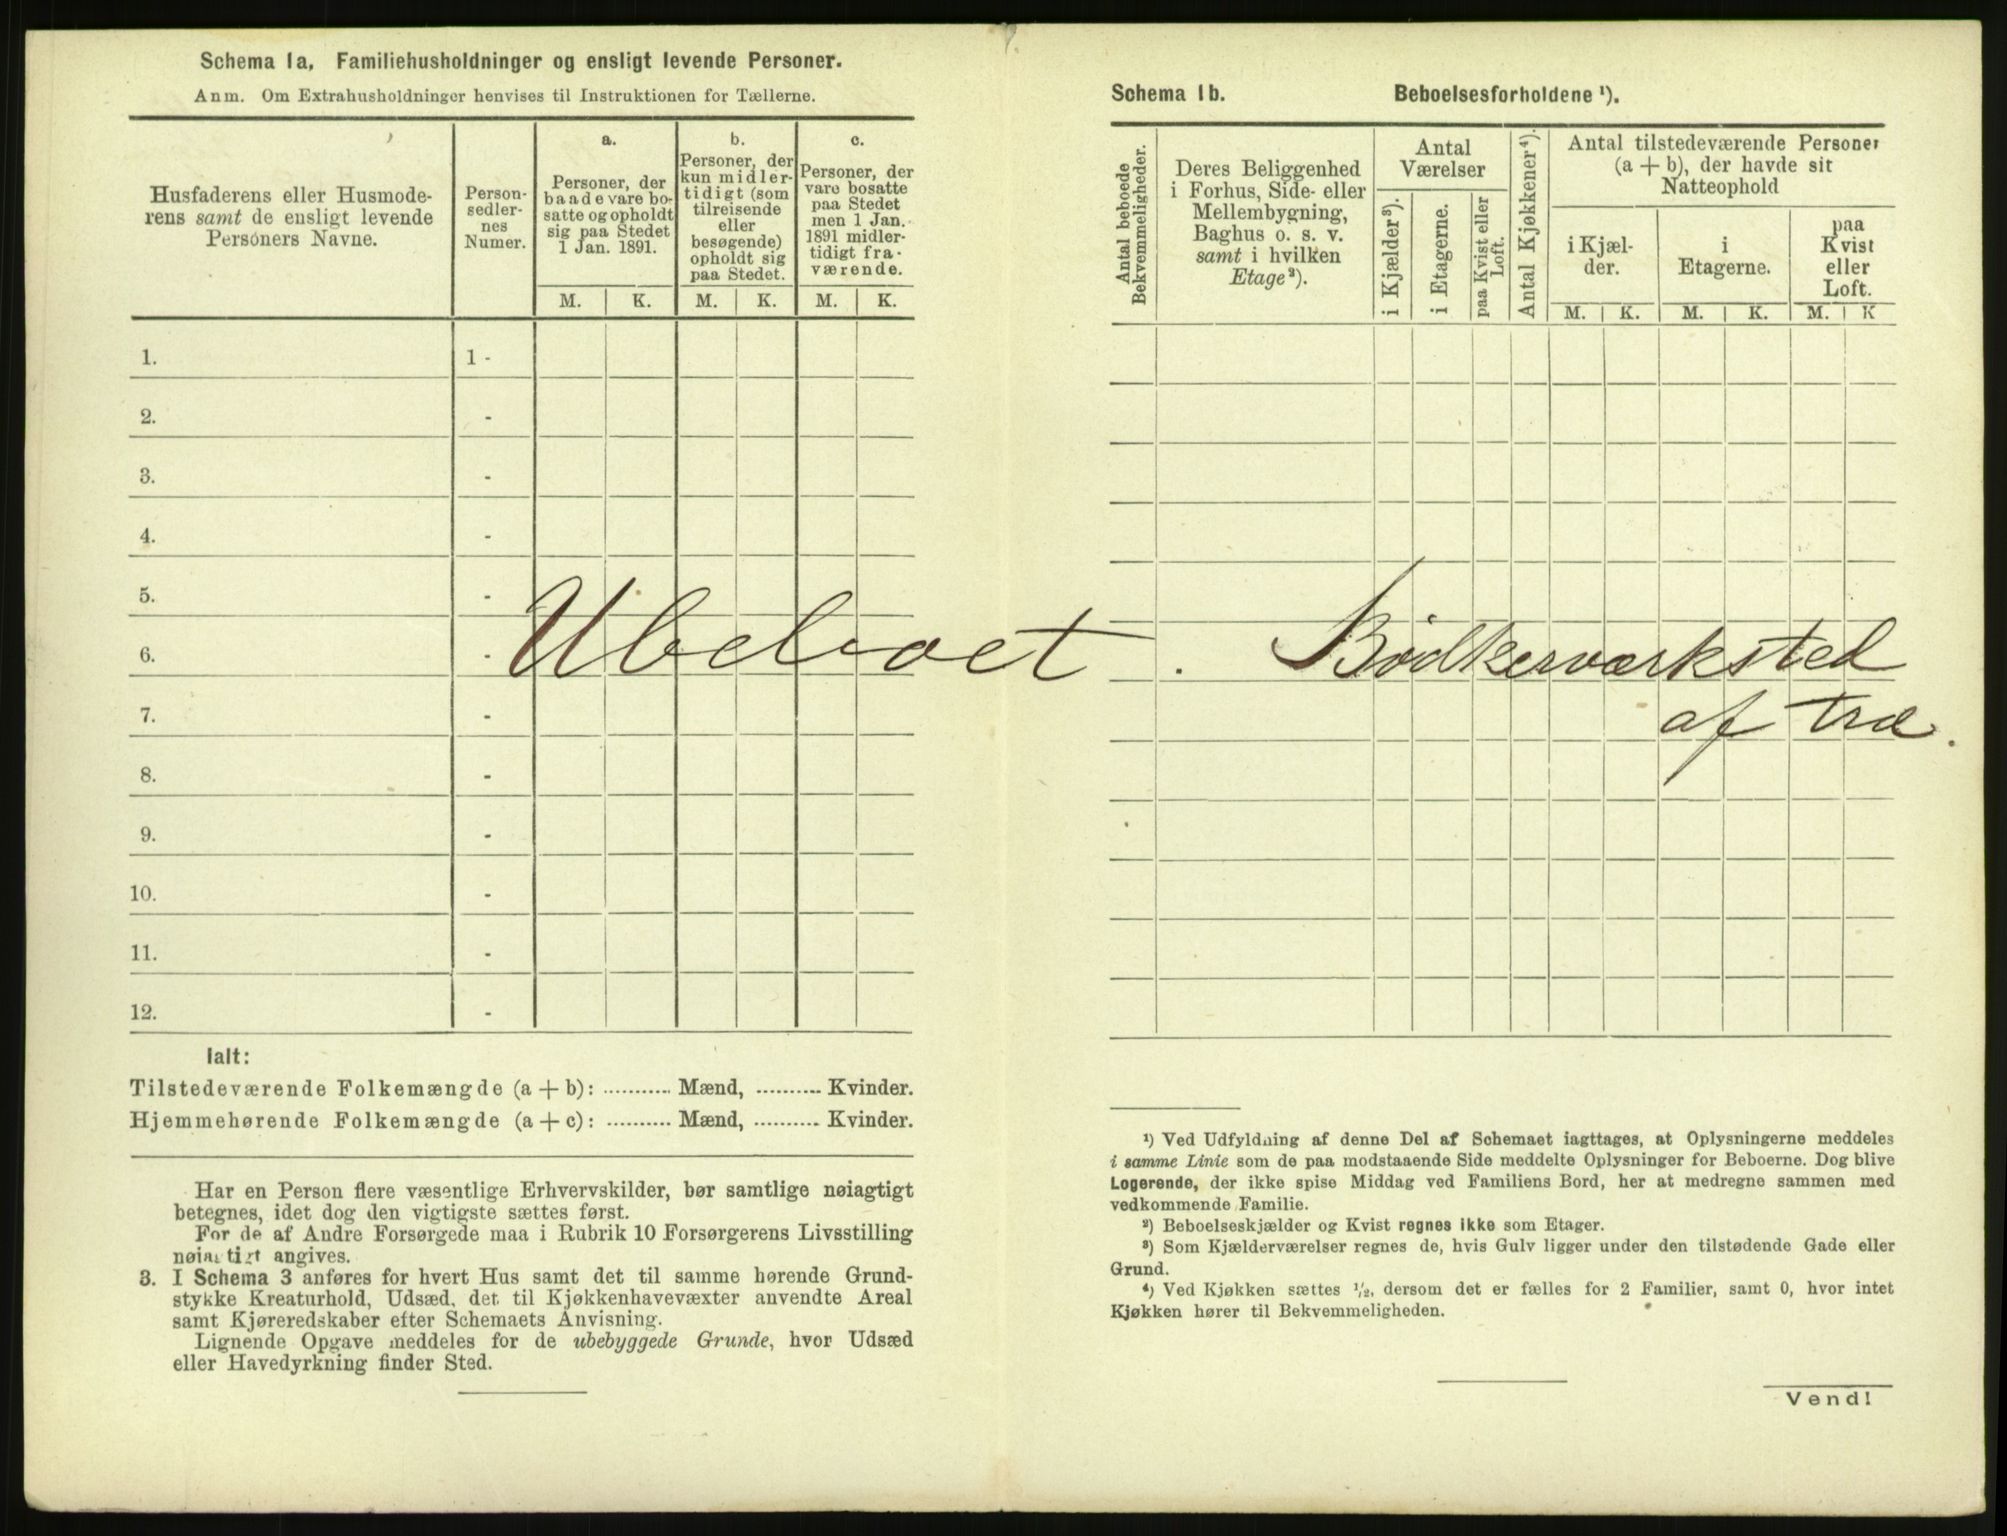 Schema 1a, Familiehusholdninger og ensligt levende Personer.
Anm. Om Extrahusholdninger henvises til Instruktionen for Tællerne.
Husfaderens eller Husmode-
rens samt de ensligt levende
Personers Navne.
Person-
sedler-
nes
Numer.
a.
Personer, der
baade vare bo-
satte og opholdt
sig paa Stedet
1 Jan. 1891.
b.
Personer, der
kun midler-
tidigt (som
tilreisende
eller
besøgende)
opholdt sig
paa Stedet.
c.
Personer, der
vare bosatte
paa Stedet
men 1 Jan.
1891 midler-
tidigt fra-
værende.
M. K. M. K. M. K.
1. 1 -
2. -
3. -
4. -
5. -
6. -
7. -
8. -
9. -
10. -
11. -
12. -
Ubeboet.
Ialt:
Tilstedeværende Folkemængde (a + b): .......... Mænd, .......... Kvinder.
Hjemmehørende Folkemængde (a + c): .......... Mænd, .......... Kvinder.
Har en Person flere væsentlige Erhvervskilder, bør samtlige nøiagtigt
betegnes, idet dog den vigtigste sættes først.
For de af Andre Forsørgede maa i Rubrik 10 Forsørgerens Livsstilling
nøiagtigt angives.
3. I Schema 3 anføres for hvert Hus samt det til samme hørende Grund-
stykke Kreaturhold, Udsæd, det til Kjøkkenhavevæxter anvendte Areal
samt Kjøreredskaber efter Schemaets Anvisning.
Lignende Opgave meddeles for de ubebyggede Grunde, hvor Udsæd
eller Havedyrkning finder Sted.
Schema 1b. Beboelsesforholdene ¹).
Antal beboede
Bekvemmeligheder.
Deres Beliggenhed
i Forhus, Side- eller
Mellembygning,
Baghus o. s. v.
samt i hvilken
Etage²).
Antal
Værelser
i Kjælder³).
i Etagerne.
paa Kvist eller
Loft.
Antal Kjøkkener⁴).
Antal tilstedeværende Personer
(a + b), der havde sit
Natteophold
i Kjæl-
der.
i
Etagerne.
paa
Kvist
eller
Loft.
M. K. M. K. M. K
Bødkerværksted
af træ.
¹) Ved Udfyldning af denne Del af Schemaet iagttages, at Oplysningerne meddeles
i samme Linie som de paa modstaaende Side meddelte Oplysninger for Beboerne. Dog blive
Logerende, der ikke spise Middag ved Familiens Bord, her at medregne sammen med
vedkommende Familie.
²) Beboelseskjælder og Kvist regnes ikke som Etager.
³) Som Kjælderværelser regnes de, hvis Gulv ligger under den tilstødende Gade eller
Grund.
⁴) Ved Kjøkken sættes ½, dersom det er fælles for 2 Familier, samt 0, hvor intet
Kjøkken hører til Bekvemmeligheden.
Vend!